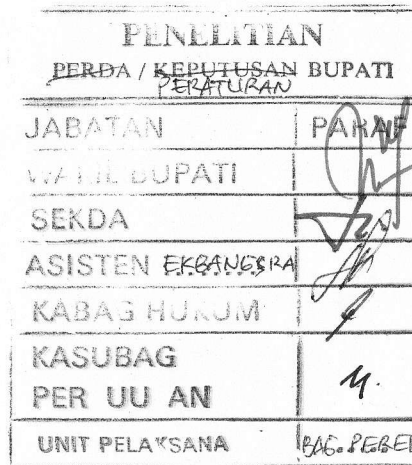 PENELITIAN
PERDA / KEPUTUSAN BUPATI
PERATURAN
JABATAN PARAF
WAKIL BUPATI
SEKDA
ASISTEN EKBANGSRA
KABAG HUKUM
KASUBAG
PER UU AN
UNIT PELAKSANA BAG.